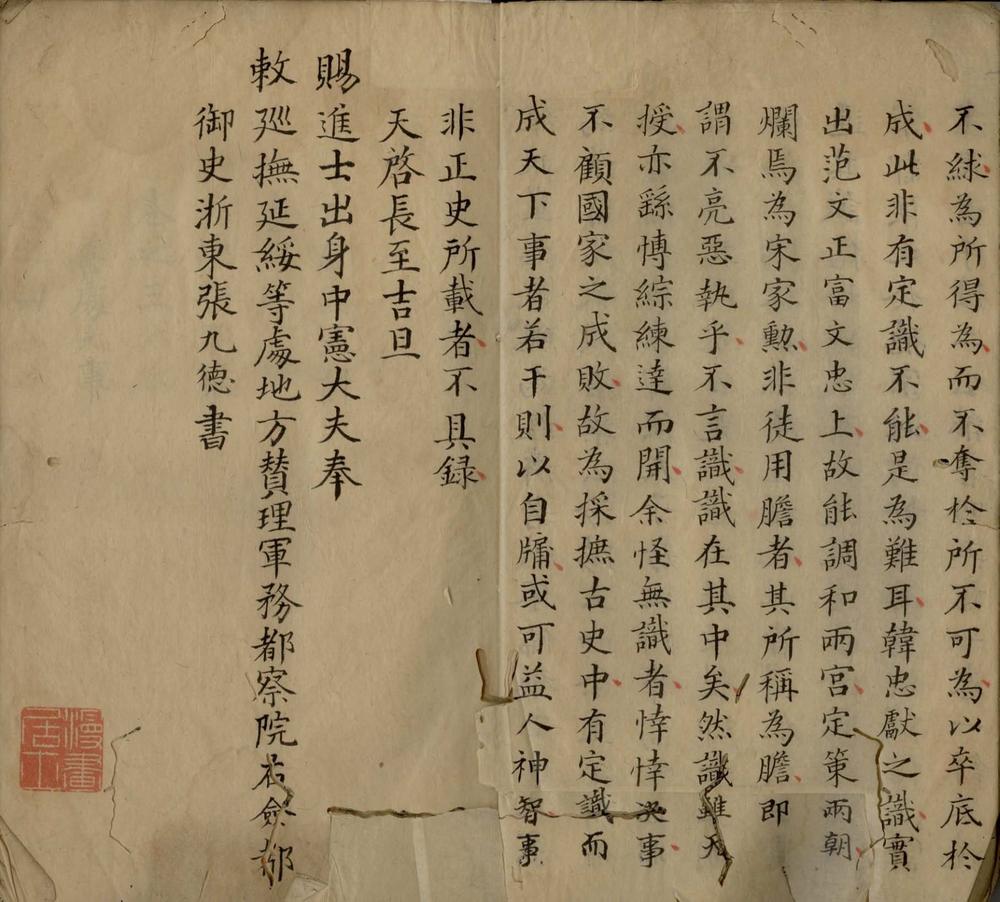 不絿為所得為而不奪於所不可為以卒底於
成此非有定識不能是為難耳韓忠獻之識實
出范文正富文忠上故能調和兩宮定策兩朝
爛焉為宋家勲非徒用膽者其所稱為膽即
謂不亮惡執乎不言識識在其中矣然識雖天
授亦繇愽綜練達而開余怪無識者悻悻决事
不顧國家之成敗故為採摭古史中有定識而
成天下事者若干則以自牖或可益人神智事
非正史所載者不具録
天啓長至吉旦
賜進士出身中憲大夫奉
敕廵撫延綏等處地方賛理軍務都察院右僉都
御史浙東張九德書
漫畫居士